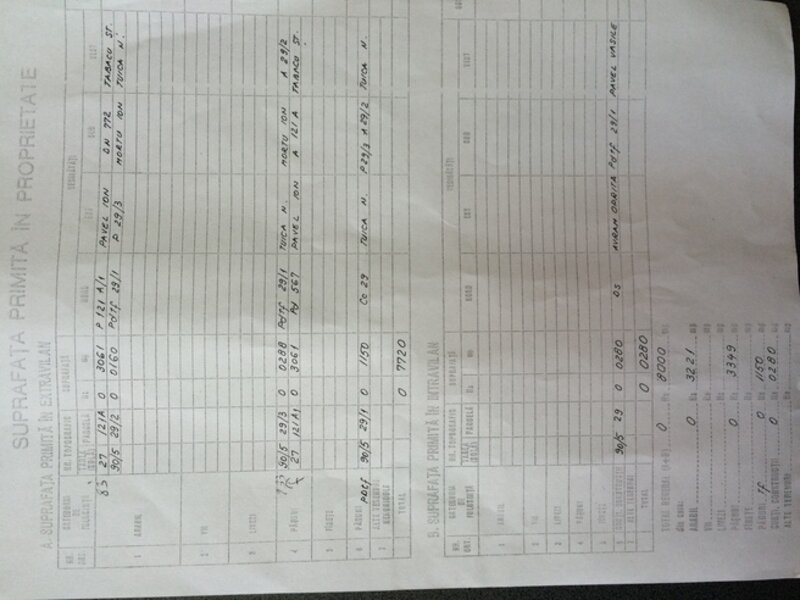 SUPRAFAȚA PRIMITĂ ÎN PROPRIETATE
A. SUPRAFAȚA PRIMITĂ ÎN EXTRAVILAN
NR. CATEGORIA DE NR. TOPOGRAFIC SUPRAFAȚA VECINĂTĂȚI
PARCELĂ Ha NORD EST SUD VEST
1 ARABIL 27 121A 0 3061 P 121 A/1 PAVEL ION DN 772 TABACU ST.
90/5 29/2 0 0160 PdTf 29/1 P 29/3 MORTU ION TUICA N.
2 VII
3 LIVEZI
4 PĂȘUNI 90/5 29/3 0 0288 PdTf 29/1 TUICA N. MORTU ION A 29/2
27 121A1 0 3061 Pd 567 PAVEL ION A 121 A TABACU ST.
5 FÎNEȚE
6 PĂDURI PDTf 90/5 29/1 0 1150 Cc 29 TUICA N. P29/3 A29/2 TUICA N.
7
TOTAL 0 7720
B. SUPRAFAȚA PRIMITĂ ÎN INTRAVILAN
NR. CATEGORIA DE NR. TOPOGRAFIC SUPRAFAȚA VECINĂTĂȚI
PARCELĂ Ha NORD EST SUD VEST
1 ARABIL
2 VII
3 LIVEZI
4 PĂȘUNI
5 FÎNEȚE
90/5 29 0 0280 DS PdTf 29/1 PAVEL VASILE
TOTAL 0 0280
TOTAL GENERAL (A+B) 0 Ha 8000 mp
din care:
ARABIL 0 Ha 3221 mp
VII Ha mp
LIVEZI Ha mp
PĂȘUNI 0 Ha 3349 mp
FÎNEȚE Ha mp
PĂDURI Tf 0 Ha 1150 mp
CURȚI, CONSTRUCȚII 0 Ha 0280 mp
ALTE TERENURI Ha mp